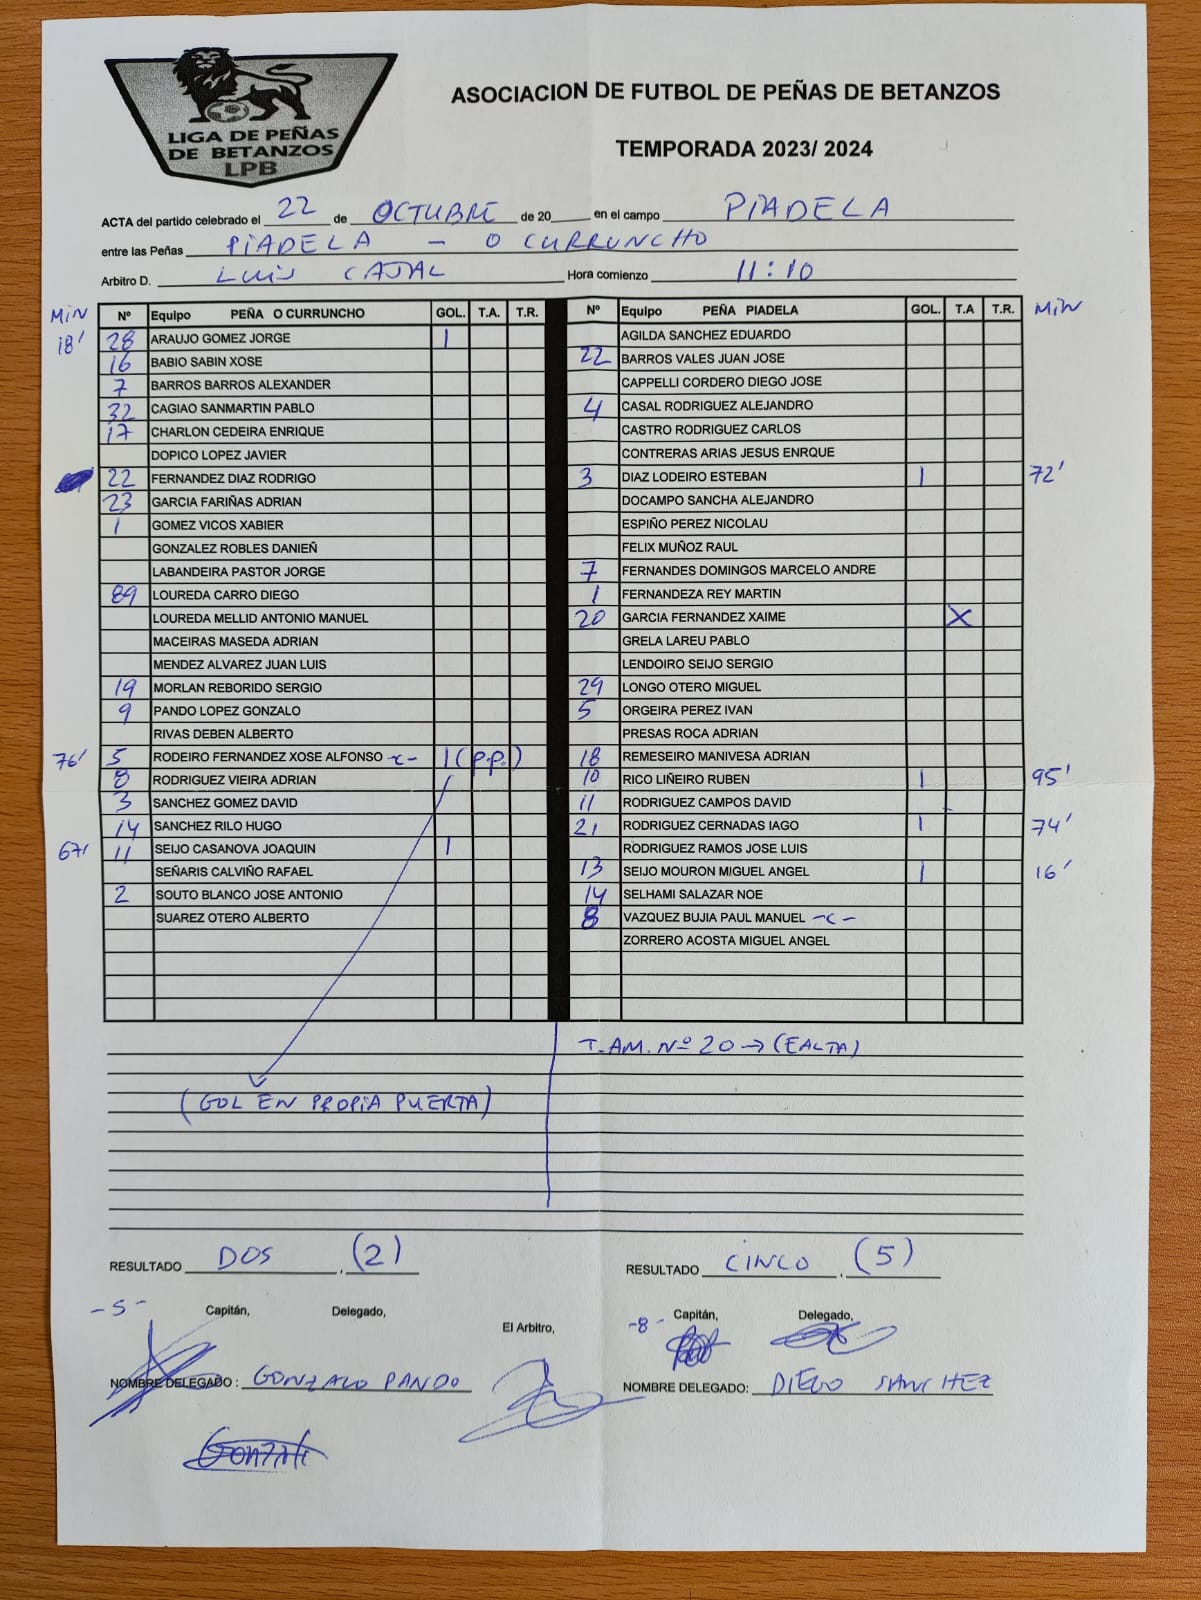 LIGA DE PEÑAS
DE BETANZOS
LPB
ASOCIACION DE FUTBOL DE PEÑAS DE BETANZOS
TEMPORADA 2023/ 2024
ACTA del partido celebrado el 22 de OCTUBRE de 20____ en el campo PIADELA
entre las Peñas PIADELA - O CURRUNCHO
Arbitro D. LUIS CAJAL Hora comienzo 11:10
MIN Nº Equipo PEÑA O CURRUNCHO GOL. T.A. T.R.
18' 28 ARAUJO GOMEZ JORGE 1
16 BABIO SABIN XOSE
7 BARROS BARROS ALEXANDER
32 CAGIAO SANMARTIN PABLO
17 CHARLON CEDEIRA ENRIQUE
DOPICO LOPEZ JAVIER
22 FERNANDEZ DIAZ RODRIGO
23 GARCIA FARIÑAS ADRIAN
1 GOMEZ VICOS XABIER
GONZALEZ ROBLES DANIEÑ
LABANDEIRA PASTOR JORGE
89 LOUREDA CARRO DIEGO
LOUREDA MELLID ANTONIO MANUEL
MACEIRAS MASEDA ADRIAN
MENDEZ ALVAREZ JUAN LUIS
19 MORLAN REBORIDO SERGIO
9 PANDO LOPEZ GONZALO
RIVAS DEBEN ALBERTO
76' 5 RODEIRO FERNANDEZ XOSE ALFONSO -c- 1 (p.p.)
8 RODRIGUEZ VIEIRA ADRIAN
3 SANCHEZ GOMEZ DAVID
14 SANCHEZ RILO HUGO
67' 11 SEIJO CASANOVA JOAQUIN 1
SEÑARIS CALVIÑO RAFAEL
2 SOUTO BLANCO JOSE ANTONIO
SUAREZ OTERO ALBERTO
Nº Equipo PEÑA PIADELA GOL. T.A T.R. MIN
AGILDA SANCHEZ EDUARDO
22 BARROS VALES JUAN JOSE
CAPPELLI CORDERO DIEGO JOSE
4 CASAL RODRIGUEZ ALEJANDRO
CASTRO RODRIGUEZ CARLOS
CONTRERAS ARIAS JESUS ENRQUE
3 DIAZ LODEIRO ESTEBAN 1 72'
DOCAMPO SANCHA ALEJANDRO
ESPIÑO PEREZ NICOLAU
FELIX MUÑOZ RAUL
7 FERNANDES DOMINGOS MARCELO ANDRE
1 FERNANDEZA REY MARTIN
20 GARCIA FERNANDEZ XAIME X
GRELA LAREU PABLO
LENDOIRO SEIJO SERGIO
29 LONGO OTERO MIGUEL
5 ORGEIRA PEREZ IVAN
PRESAS ROCA ADRIAN
18 REMESEIRO MANIVESA ADRIAN
10 RICO LIÑEIRO RUBEN 1 95'
11 RODRIGUEZ CAMPOS DAVID
21 RODRIGUEZ CERNADAS IAGO 1 74'
RODRIGUEZ RAMOS JOSE LUIS
13 SEIJO MOURON MIGUEL ANGEL 1 16'
14 SELHAMI SALAZAR NOE
8 VAZQUEZ BUJIA PAUL MANUEL -c-
ZORRERO ACOSTA MIGUEL ANGEL
T.AM. Nº 20 → (FALTA)
(GOL EN PROPIA PUERTA)
RESULTADO DOS, (2)
RESULTADO CINCO, (5)
-5- Capitán, Delegado,
El Arbitro,
-8- Capitán, Delegado,
NOMBRE DELEGADO : GONZALO PANDO
NOMBRE DELEGADO: DIEGO SANCHEZ